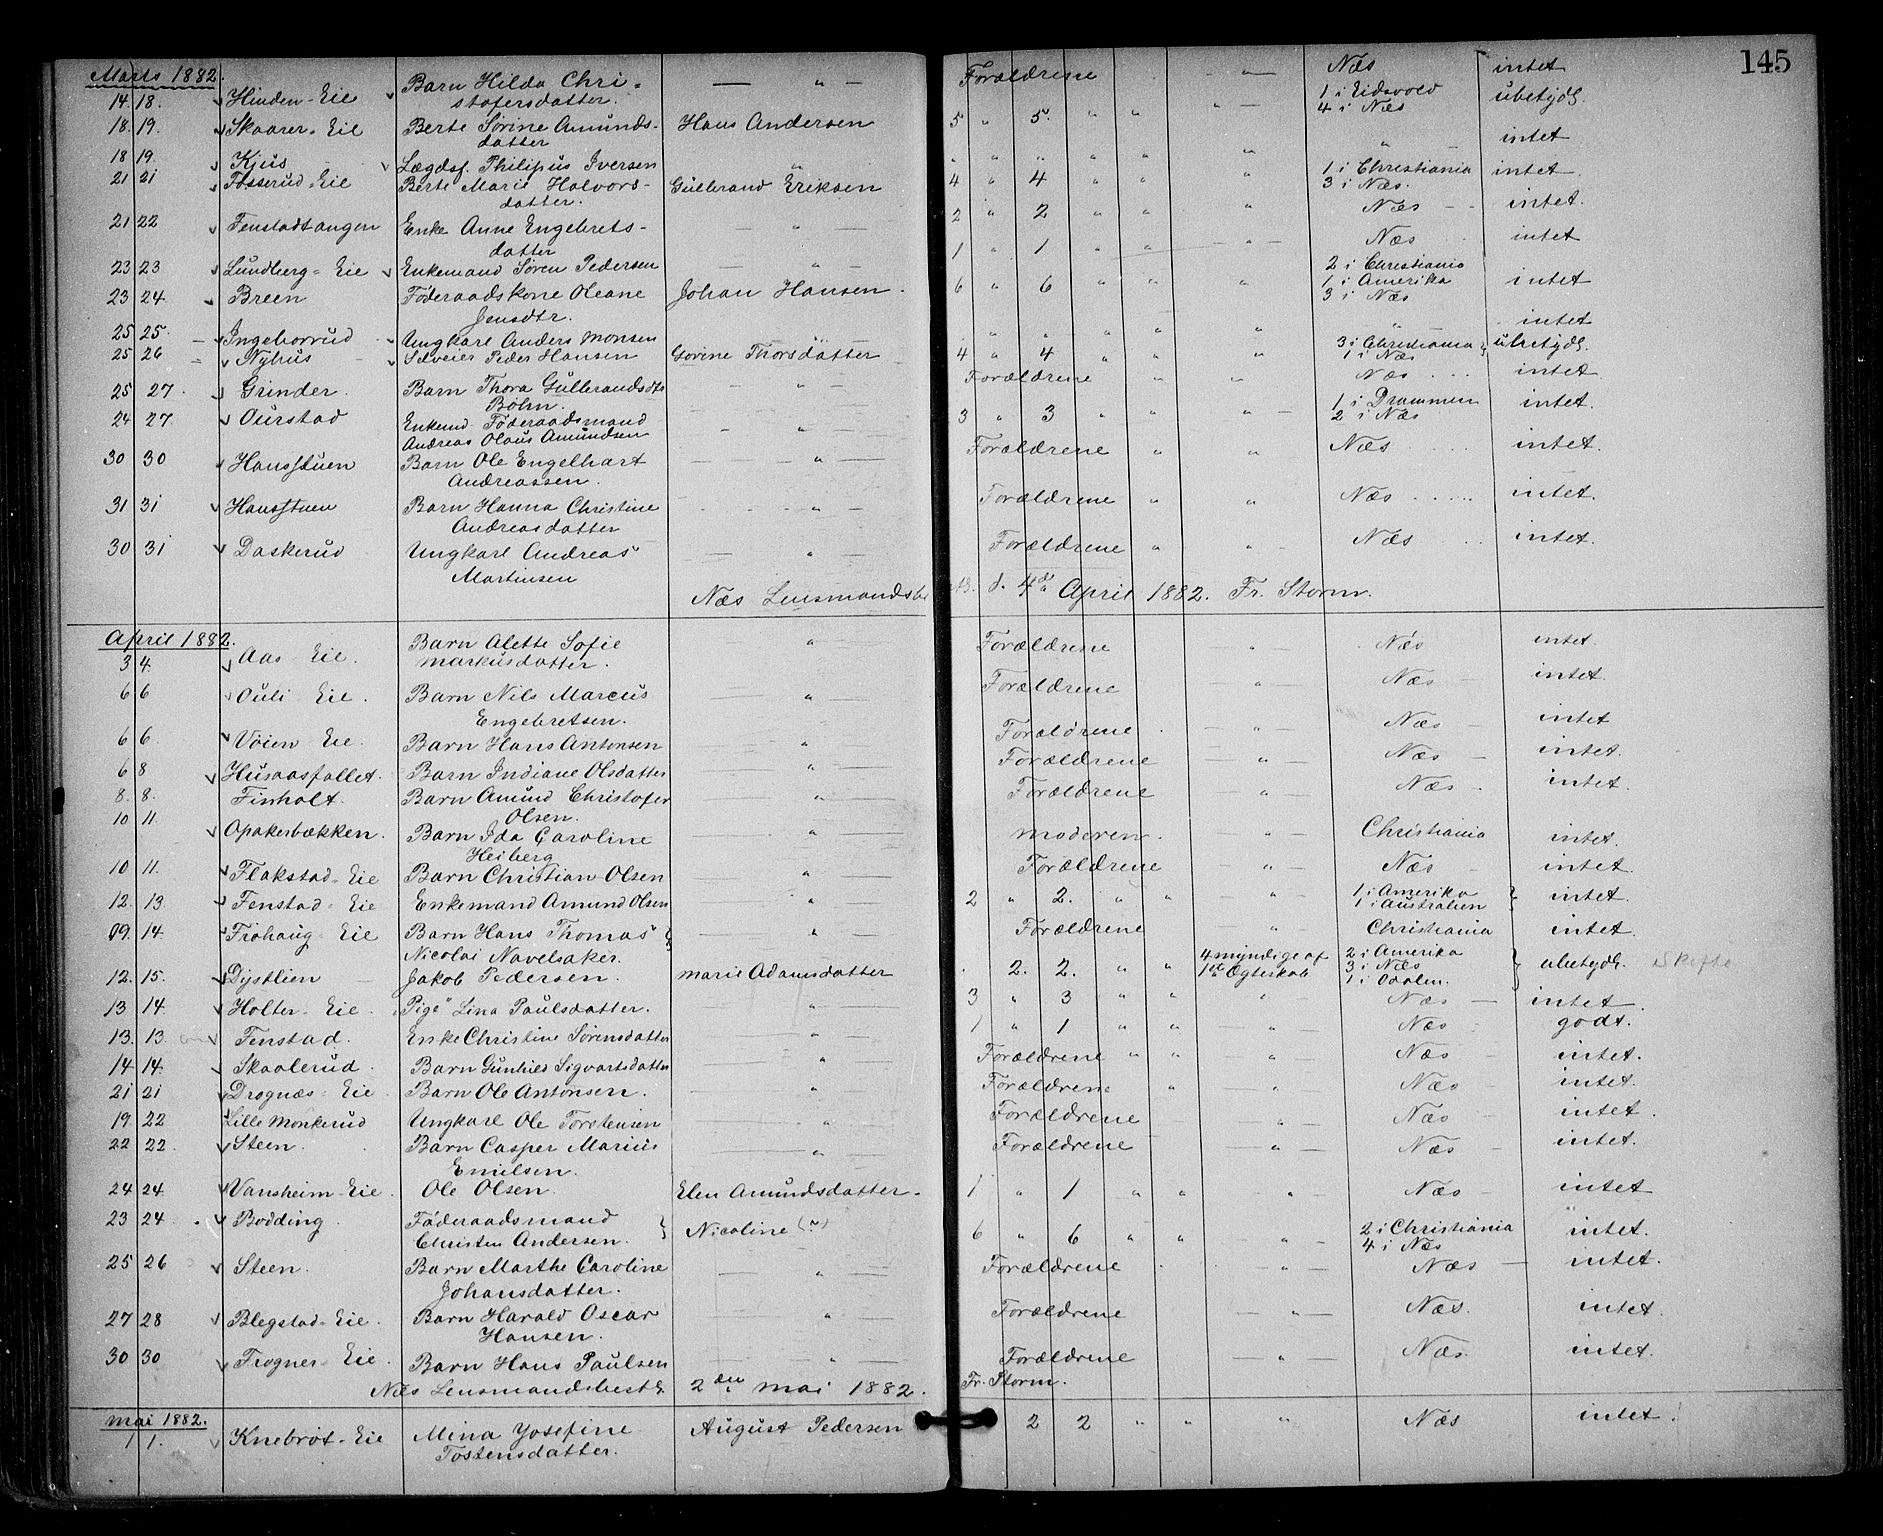 145
Marts 1882.
14 18. Hinden-Eie Barn Hilda Chri- — " — Forældrene " Næs intet
stofersdatter.
18. 19. Skaarer-Eie Berte Sørine Amunds- Hans Andersen 5 " 5. " " " 1 i Eidsvold ubetydl.
datter 4 i Næs
18 19. Kjus Lægdsf. Philipus Iversen " " " " " " " " intet
21 21 Fosserud-Eie Berte Marie Halvors- Gulbrand Eriksen 4 " 4 " " " 1 i Christiania intet
datter. 3 i Næs.
21 22 Fenstadtangen Enke Anne Engebrets- — " — 2 " 2 " " " Næs intet.
datter
23 23 Lundberg-Eie Enkemand Søren Pedersen " 1 " 1 " " " Næs intet
23 24. Breen Føderaadskone Oleane Johan Hansen. 6 " 6 " " " 2 i Christiania
Jensdtr. 1 i Amerika intet
3 i Næs
25 25. Ingeborrud Ungkarl Anders Monsen " " " " " " intet
25 26 Nyhus Selveier Peder Hansen Gorine Thorsdatter 4 " 4 " " " 3 i Christiania ubetydl.
1 i Næs
25 27. Grinder. Barn Thora Gulbrandsdtr — " — Forældrene " " Næs intet
Bøhn.
24 27. Ourstad Enkemd. Føderaadsmand — " — 3 " 3 " " " 1 i Drammen intet.
Andreas Olaus Amundsen 2 i Næs
30 30 Hansstuen Barn Ole Engelhart " Forældrene " " Næs intet.
Andreassen.
31 31 Hansstuen Barn Hanna Christine " Forældrene " " Næs intet.
Andreasdatter
30 31 Daskerud Ungkarl Andreas " Forældrene " " Næs intet.
Martinsen
Næs Lensmandsbe d. 4de April 1882. Fr. Storm.
April 1882.
3 4. Aas-Eie. Barn Alette Sofie " Forældrene " Næs intet.
Markusdatter.
6 6 Ouli-Eie. Barn Nils Marcus " Forældrene " Næs intet.
Engebretsen.
6 6. Vøien-Eie. Barn Hans Antonsen " Forældrene " Næs intet
6 8 Husaasfallet. Barn Indiane Olsdatter " Forældrene " Næs intet.
8. 8. Finholt. Barn Amund Christofer " Forældrene " Næs intet.
Olsen.
10 11. Opakerbækken. Barn Ida Caroline " Moderen. " Christiania intet.
Heiberg
10 11. Flakstad-Eie Barn Christian Olsen " Forældrene " Næs intet.
12. 13. Fenstad-Eie Enkemand Amund Olsen " 2 " 2. " " " 1 i Amerika intet.
1 i Australien
09. 14. Frøhaug-Eie Barn Hans Thomas " Forældrene " Christiania intet.
Nicolai Navelsaker.
12. 15. Dystlien Jakob Pedersen. Marie Adamsdatter 2. 2. " " 4 myndige af 2 i Amerika ubetydl. Skifte
1st Ægteskab 3 i Næs
1 i Odalen.
13 14. Holter-Eie. Pige Lina Paulsdatter. " 3 " 3 " " " Næs intet
13. 13. Fenstad. Enke Christine Sørensdatter " 1 " 1 " " " Næs godt.
14 14. Skaalerud. Barn Gunhild Sigvartsdatter " Forældrene " " " Næs intet.
21 21 Drognæs-Eie Barn Ole Antonsen. " Forældrene " " Næs intet.
19. 22 Lille Monkerud Ungkarl Ole Torstensen " Forældrene " Næs intet.
22 22. Steen. Barn Casper Marius " Forældrene " Næs intet.
Emilsen.
24 24. Vansheim-Eie. Ole Olsen. Elen Amundsdatter. 1 " 1 " " " Næs intet
23 24. Bodding. Føderaadsmand Nicoline (~) 6 " 6 " " " 2 i Christiania intet.
Christen Andersen. 4 i Næs
25 26 Steen. Barn Marthe Caroline " Forældrene " Næs intet.
Johansdatter.
27 28 Blegstad-Eie. Barn Harald Oscar " Forældrene " Næs. intet.
Hansen.
30 30 Frogner-Eie. Barn Hans Paulsen " Forældrene " Næs. intet.
Næs Lensmandsbest. 2den Mai 1882. Fr. Storm.
Mai 1882.
1 1. Knebrøt-Eie Mina Josefine August Pedersen 2 2 " " " Næs intet.
Tostensdatter.